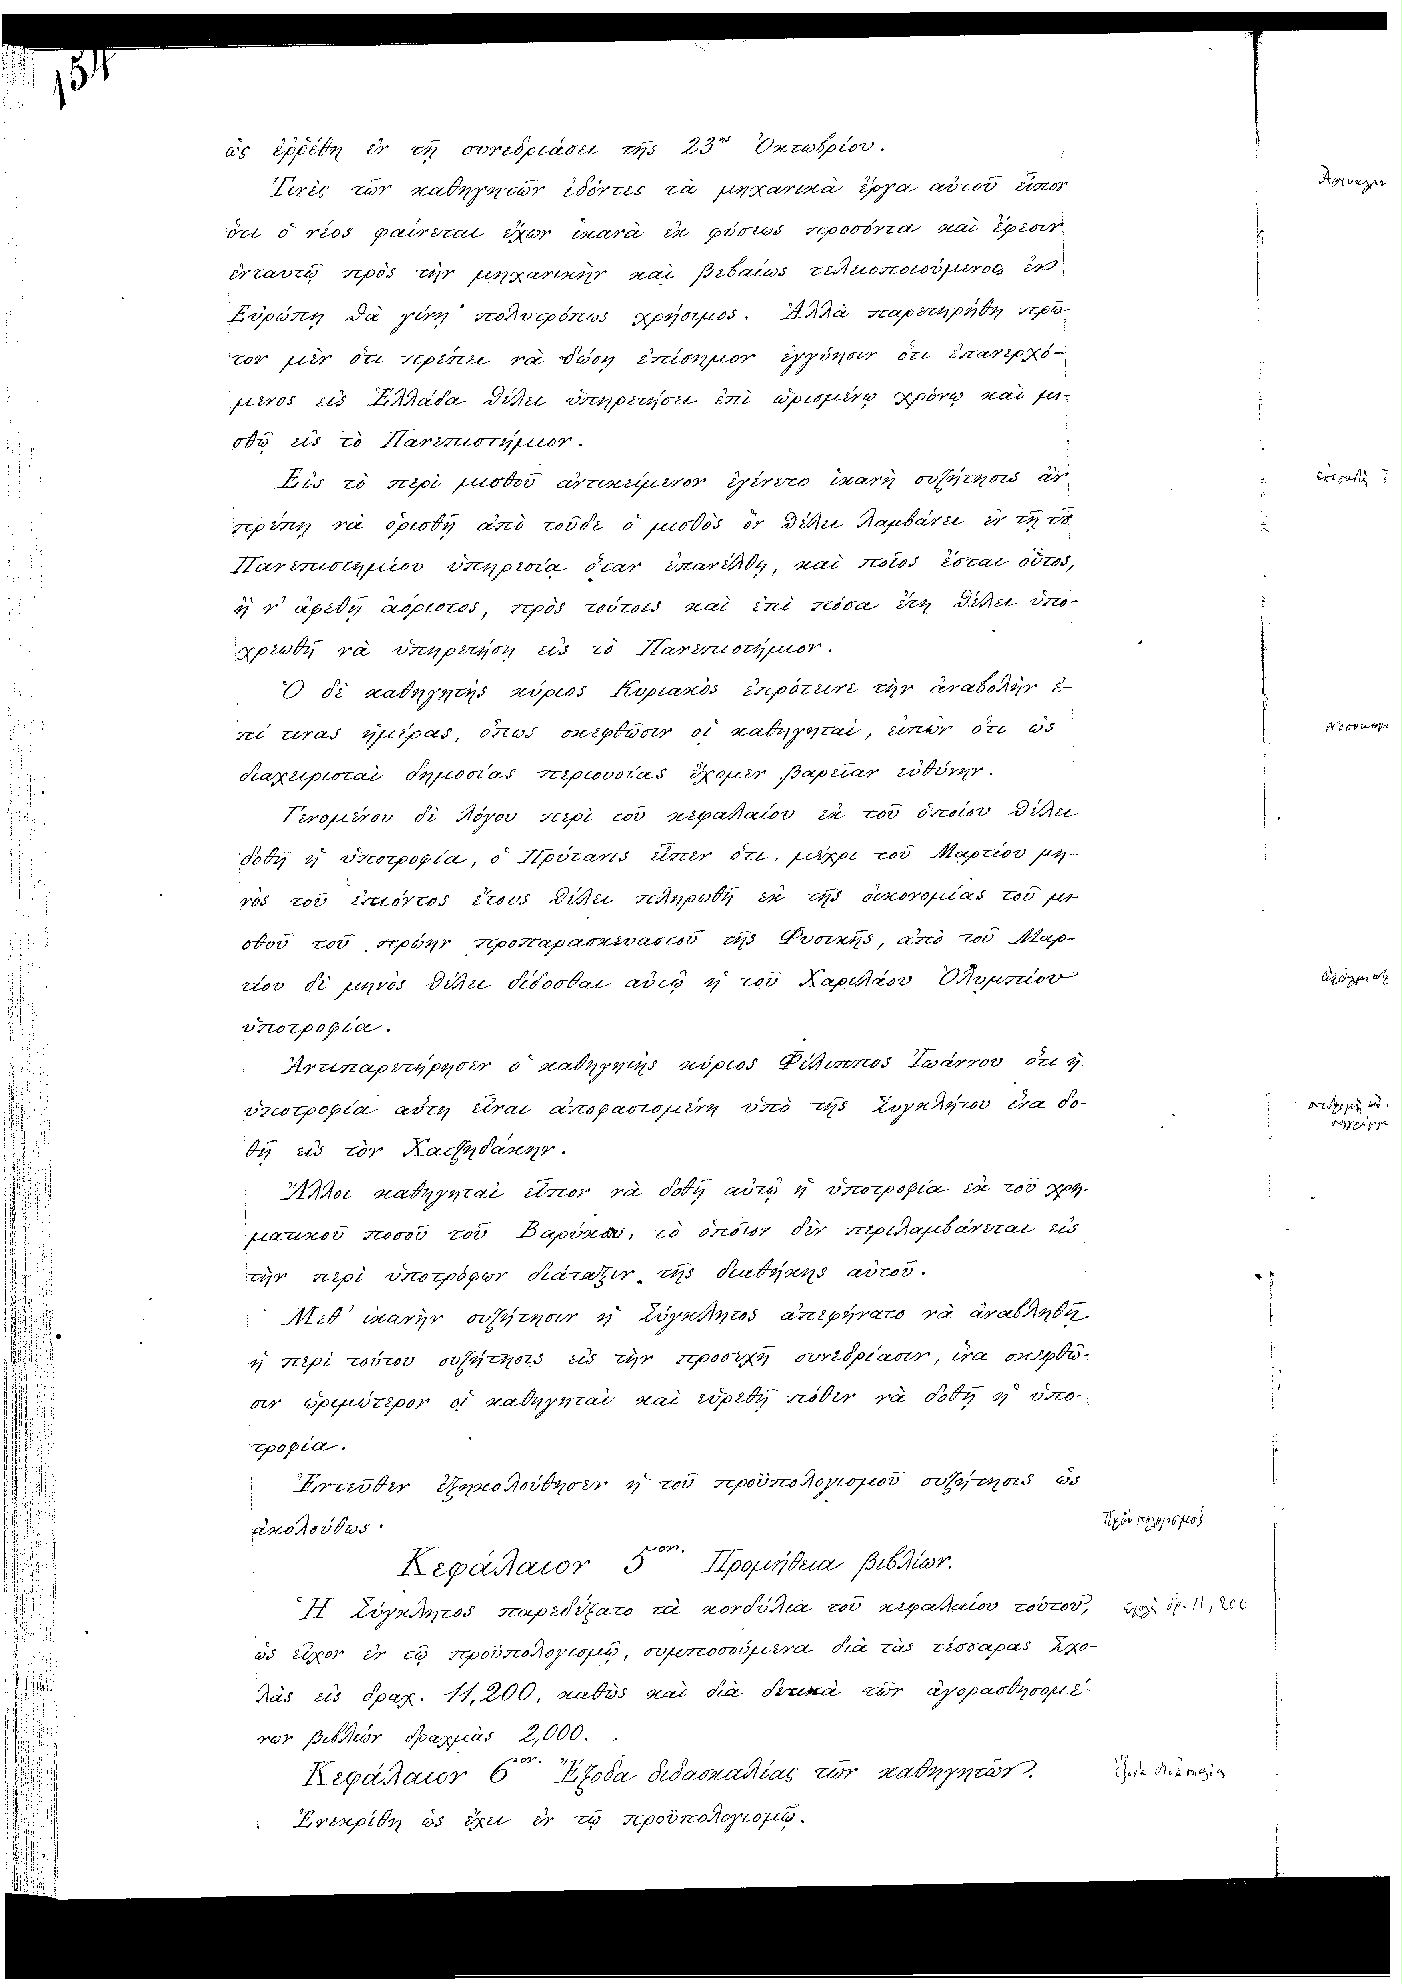 154
ὡς ἐῤῥέθη ἐν τῇ συνεδριάσει τῆς 23ης Ὀκτωβρίου.
Τινὲς τῶν καθηγητῶν ἰδόντες τὰ μηχανικὰ ἔργα αὐτοῦ εἶπον
ὅτι ὁ νέος φαίνεται ἔχων ἱκανὰ ἐκ φύσεως προσόντα καὶ ἔφεσιν
ἐνταυτῷ πρὸς τὴν μηχανικὴν καὶ βεβαίως τελειοποιούμενος ἐν
Εὐρώπῃ θὰ γίνῃ πολυτρόπως χρήσιμος. Ἀλλὰ παρετηρήθη πρῶ-
τον μὲν ὅτι πρέπει νὰ δώσῃ ἐπίσημον ἐγγύησιν ὅτι ἐπανερχό-
μενος εἰς Ἑλλάδα θέλει ὑπηρετήσει ἐπὶ ὡρισμένῳ χρόνῳ καὶ μι-
σθῷ εἰς τὸ Πανεπιστήμιον.
Εἰς τὸ περὶ μισθοῦ ἀντικείμενον ἐγένετο ἱκανὴ συζήτησις ἂν
πρέπῃ νὰ ὁρισθῇ ἀπὸ τοῦδε ὁ μισθὸς ὃν θέλει λαμβάνει ἐν τῇ τοῦ
Πανεπιστημίου ὑπηρεσίᾳ ὅταν ἐπανέλθῃ, καὶ ποῖος ἔσται οὗτος,
ἢ ν' ἀφεθῇ ἀόριστος, πρὸς τούτοις καὶ ἐπὶ πόσα ἔτη θέλει ὑπο-
χρεωθῇ νὰ ὑπηρετήσῃ εἰς τὸ Πανεπιστήμιον.
Ὁ δὲ καθηγητὴς κύριος Κυριακὸς ἐπρότεινε τὴν ἀναβολὴν ἐ-
πί τινας ἡμέρας, ὅπως σκεφθῶσιν οἱ καθηγηταί, εἰπὼν ὅτι ὡς
διαχειρισταὶ δημοσίας περιουσίας ἔχομεν βαρεῖαν εὐθύνην.
Γενομένου δὲ λόγου περὶ τοῦ κεφαλαίου ἐκ τοῦ ὁποίου θέλει
δοθῇ ἡ ὑποτροφία, ὁ Πρύτανις εἶπεν ὅτι μέχρι τοῦ Μαρτίου μη-
νὸς τοῦ ἐπιόντος ἔτους θέλει πληρωθῇ ἐκ τῆς οἰκονομίας τοῦ μι-
σθοῦ τοῦ πρώην προπαρασκευαστοῦ τῆς Φυσικῆς, ἀπὸ τοῦ Μαρ-
τίου δὲ μηνὸς θέλει δίδοσθαι αὐτῷ ἡ τοῦ Χαριλάου Ὀλυμπίου
ὑποτροφία.
Ἀντιπαρετήρησεν ὁ καθηγητὴς κύριος Φίλιππος Ἰωάννου ὅτι ἡ
ὑποτροφία αὕτη εἶναι ἀποφασισμένη ὑπὸ τῆς Συγκλήτου ἵνα δο-
θῇ εἰς τὸν Χατζηδάκην.
Ἄλλοι καθηγηταὶ εἶπον νὰ δοθῇ αὐτῷ ἡ ὑποτροφία ἐκ τοῦ χρη-
ματικοῦ ποσοῦ τοῦ Βαρύκα, τὸ ὁποῖον δὲν περιλαμβάνεται εἰς
τὴν περὶ ὑποτρόφων διάταξιν τῆς διαθήκης αὐτοῦ.
Μεθ' ἱκανὴν συζήτησιν ἡ Σύγκλητος ἀπεφήνατο νὰ ἀναβληθῇ
ἡ περὶ τούτου συζήτησις εἰς τὴν προσεχῆ συνεδρίασιν, ἵνα σκεφθῶ-
σιν ὡριμώτερον οἱ καθηγηταὶ καὶ εὑρεθῇ πόθεν νὰ δοθῇ ἡ ὑπο-
τροφία.
Ἐντεῦθεν ἐξηκολούθησεν ἡ τοῦ προϋπολογισμοῦ συζήτησις ὡς
ἀκολούθως·
Προϋπολογισμός
Κεφάλαιον 5ον. Προμήθεια βιβλίων.
Ἡ Σύγκλητος παρεδέξατο τὰ κονδύλια τοῦ κεφαλαίου τούτου,
ὡς εἶχον ἐν τῷ προϋπολογισμῷ, συμποσούμενα διὰ τὰς τέσσαρας Σχο-
λὰς εἰς δραχ. 11,200, καθὼς καὶ διὰ δετικὰ τῶν ἀγορασθησομέ-
νων βιβλίων δραχμὰς 2,000.
Κεφάλαιον 6ον. Ἔξοδα διδασκαλίας τῶν καθηγητῶν.
Ἔξοδα διδασκαλίας
Ἐνεκρίθη ὡς ἔχει ἐν τῷ προϋπολογισμῷ.